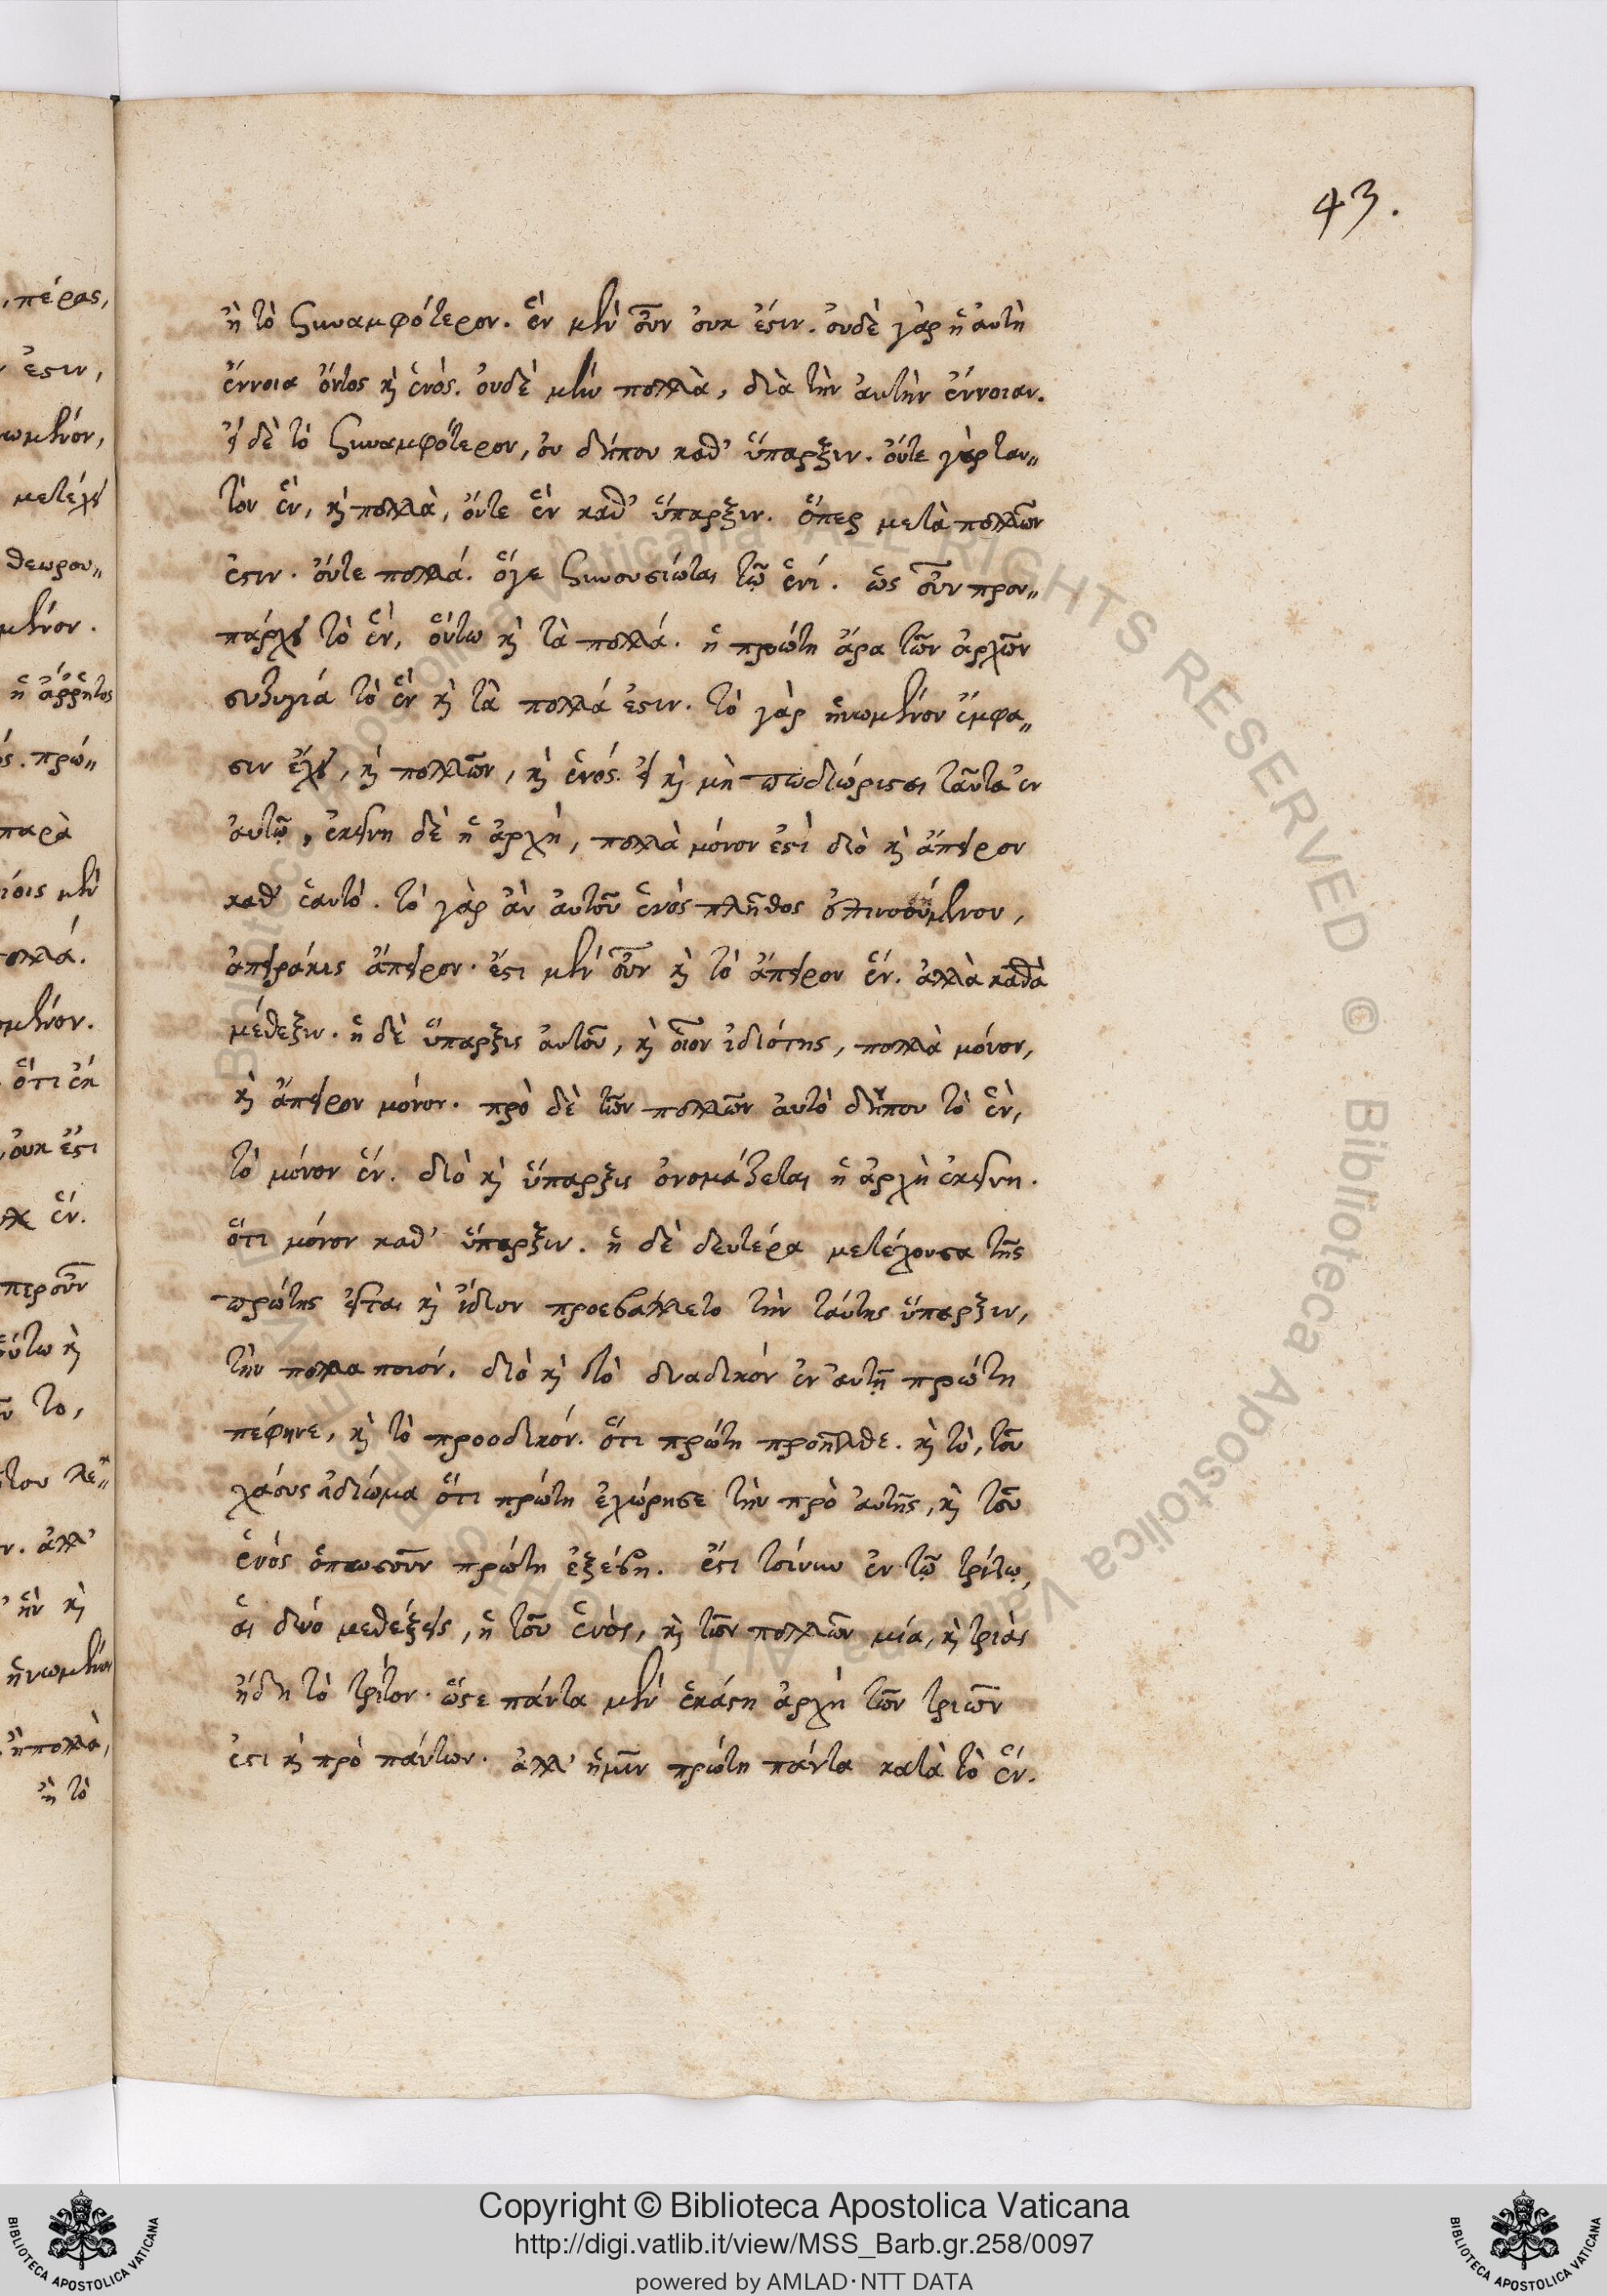 43.
ἢ τὸ ξυναμφότερον. ἓν μὲν οὖν οὐκ ἔστιν. οὐδὲ γὰρ ἡ αὐτὴ
ἔννοια ὄντος καὶ ἑνός. οὐδὲ μὴν πολλὰ, διὰ τὴν αὐτὴν ἔννοιαν.
εἰ δὲ τὸ ξυναμφότερον, οὐ δήπου καθ' ὕπαρξιν. οὔτε γὰρ ταυ„
τὸν ἓν, καὶ πολλὰ, οὔτε ἓν καθ' ὕπαρξιν. ὅπερ μετὰ πολλῶν
ἐστιν. οὔτε πολλά. ὅγε ξυνουσίωται τῷ ἑνί. ὡς οὖν πρου„
πάρχει τὸ ἓν, οὕτω καὶ τὰ πολλά. ἡ πρώτη ἄρα τῶν ἀρχῶν
συζυγία τὸ ἓν καὶ τὰ πολλά ἐστιν. τὸ γὰρ ἡνωμένον ἔμφα„
σιν ἔχει, καὶ πολλῶν, καὶ ἑνός. εἰ καὶ μὴ πω διώρισται ταῦτα ἐν
αὐτῷ, ἐκείνη δὲ ἡ ἀρχή, πολλὰ μόνον ἐστὶ διὸ καὶ ἄπειρον
καθ' ἑαυτό. τὸ γὰρ ἂν αὐτοῦ ἑνὸς πλῆθος
ἀπειράκις ἄπειρον. ἔστι μὲν οὖν καὶ τὸ ἄπειρον ἕν. ἀλλὰ κατὰ
μέθεξιν. ἡ δὲ ὕπαρξις αὐτοῦ, καὶ οἷον ἰδιότης, πολλὰ μόνον,
καὶ ἄπειρον μόνον. πρὸ δὲ τῶν πολλῶν αὐτὸ δήπου τὸ ἓν,
τὸ μόνον ἕν. διὸ καὶ ὕπαρξις ὀνομάζεται ἡ ἀρχὴ ἐκείνη.
ὅτι μόνον καθ' ὕπαρξιν. ἡ δὲ δευτέρα μετέχουσα τῆς
πρώτης καὶ ἴδιον προεβάλλετο τὴν ταύτης ὕπαρξιν,
τὴν πολλα ποιόν. διὸ καὶ τὸ δυαδικόν ἐν αὐτῇ πρώτη
πέφηνε, καὶ τὸ προοδικόν. ὅτι πρώτη προῆλθε. καὶ τὸ, τοῦ
χάους ἰδίωμα ὅτι πρώτη ἐχώρησε τὴν πρὸ αὐτῆς, καὶ τοῦ
ἑνός ὁπωσοῦν πρώτη ἐξέβη. ἔστι τοίνυν ἐν τῷ τρίτῳ,
αἱ δύο μεθέξεις, ἡ τοῦ ἑνός, καὶ τῶν πολλῶν μία, καὶ τριὰς
ἤδη τὸ τρίτον. ὥστε πάντα μὲν ἑκάστη ἀρχὴ τῶν τριῶν
ἐστι καὶ πρὸ πάντων. ἀλλ' ἡ μὲν πρώτη πάντα κατὰ τὸ ἕν.
Copyright © Biblioteca Apostolica Vaticana
http://digi.vatlib.it/view/MSS_Barb.gr.258/0097
powered by AMLAD·NTT DATA